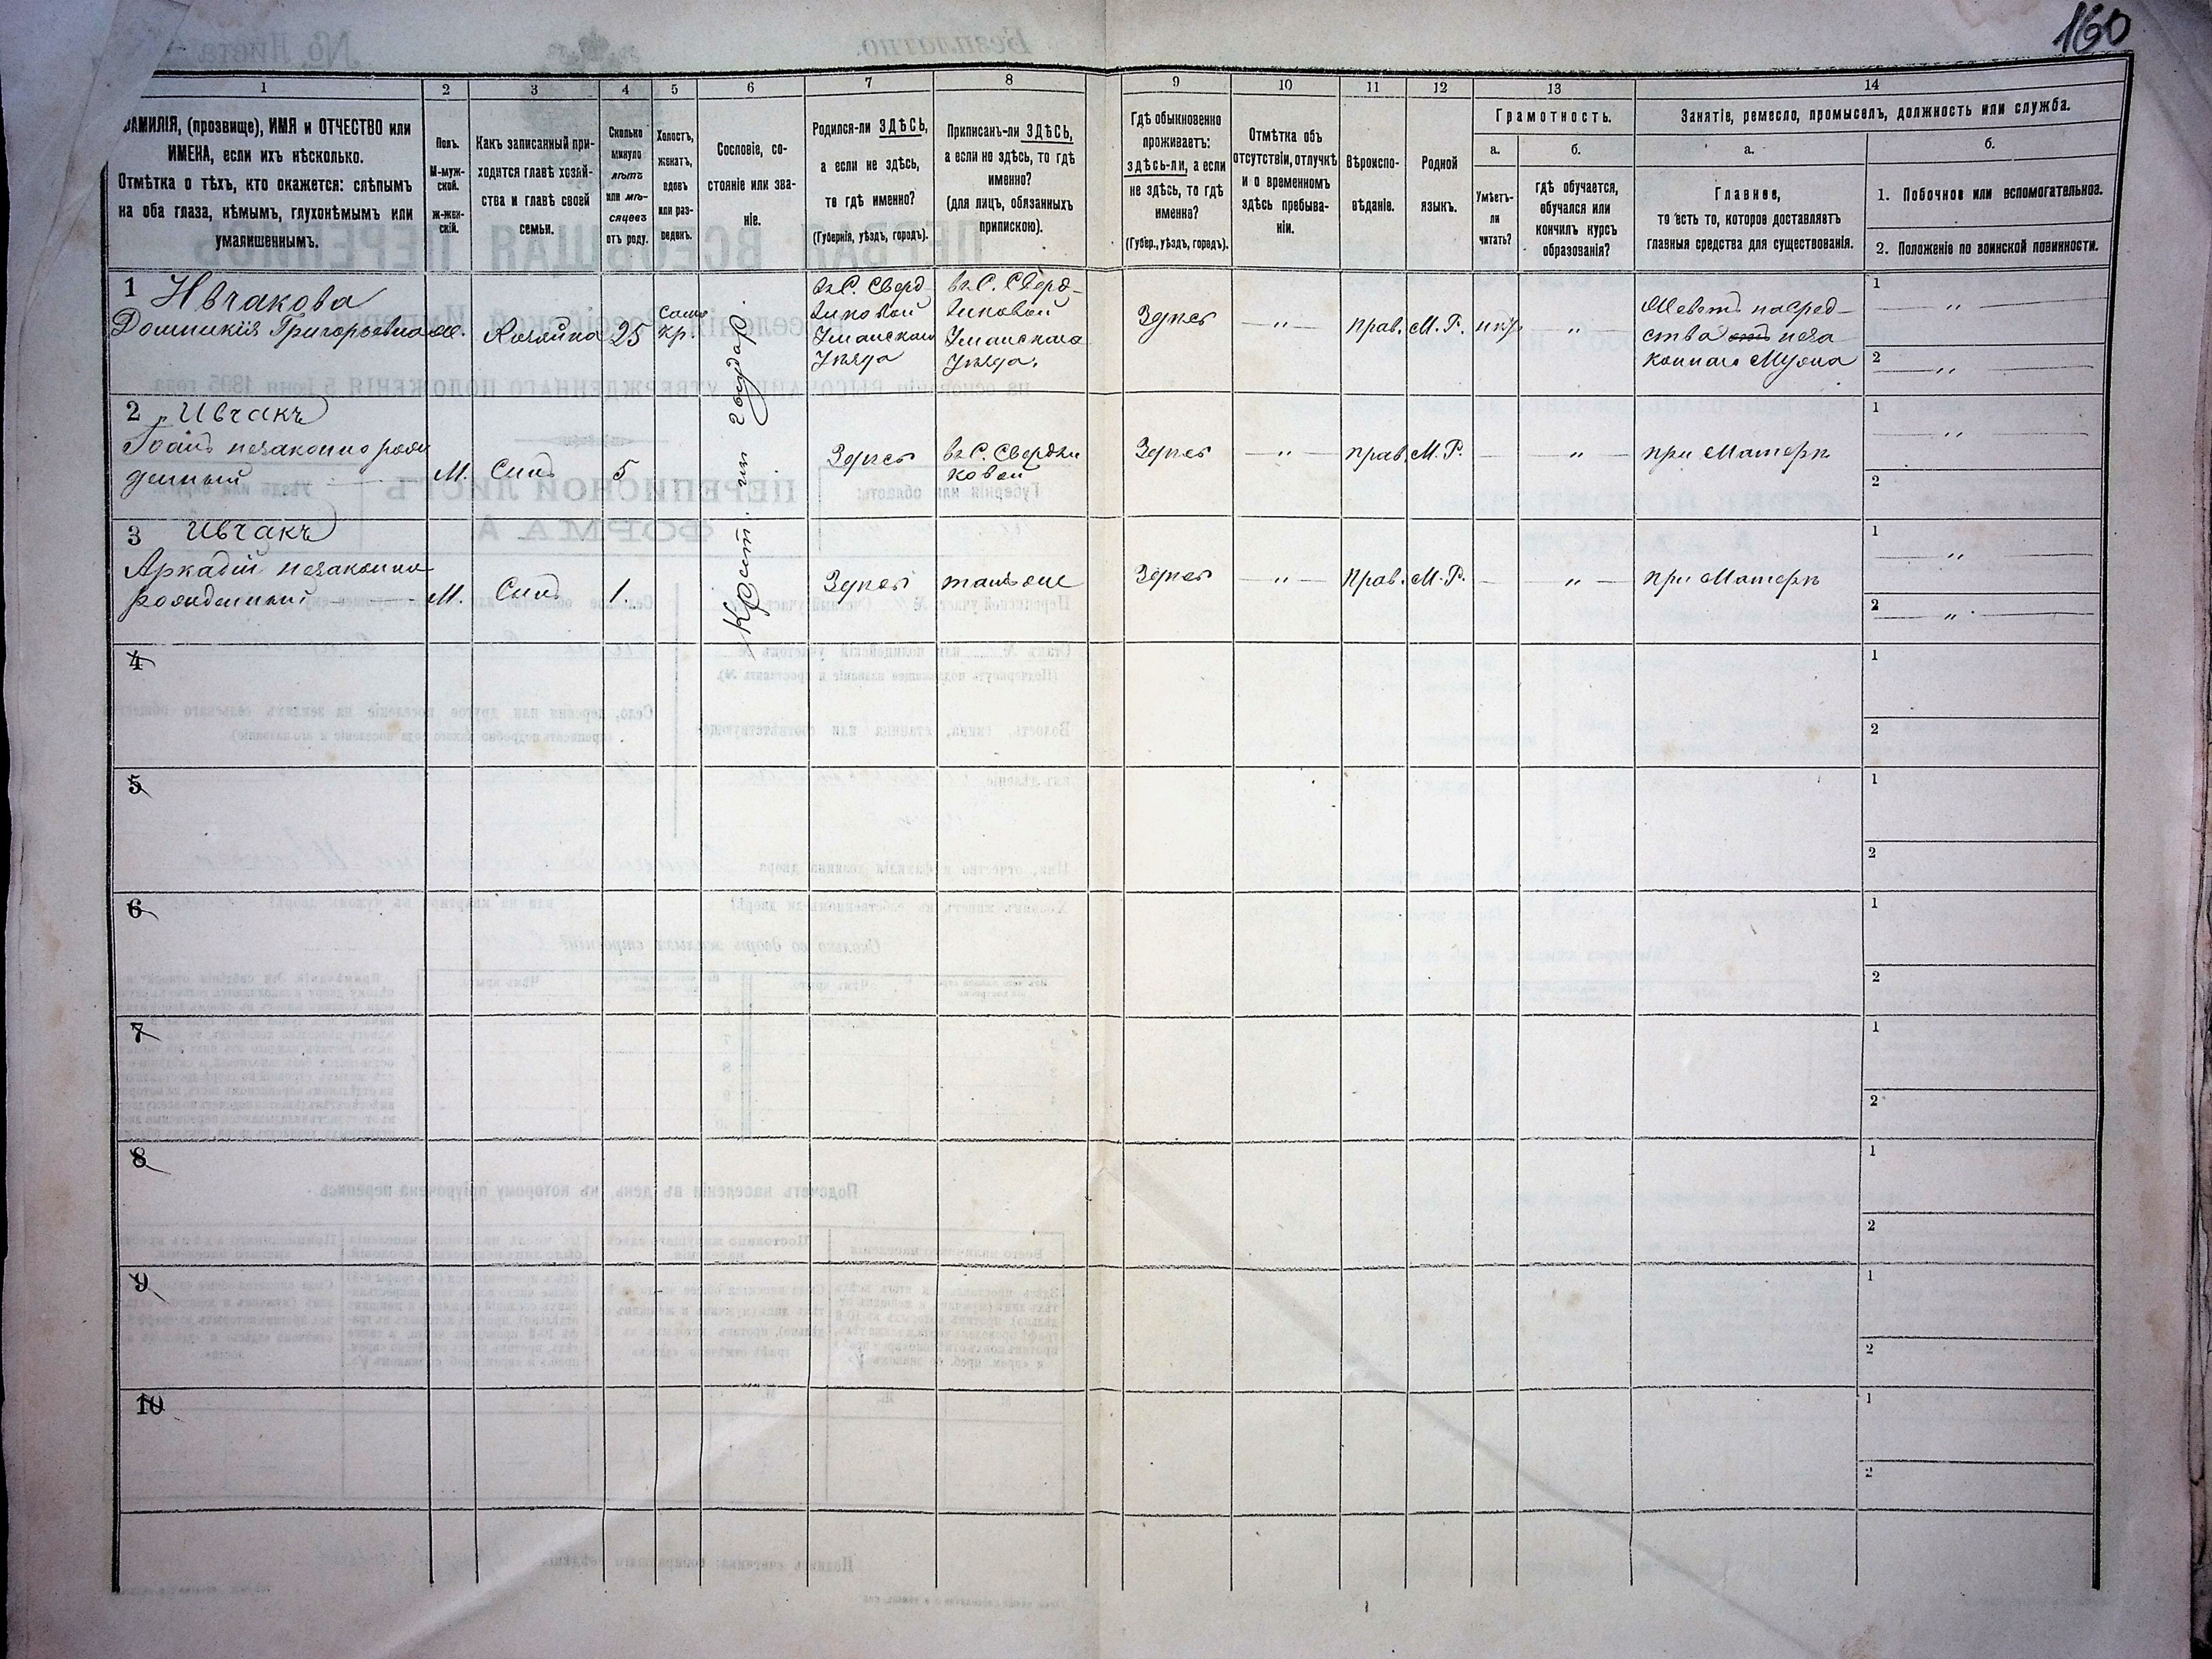 160
1
2
3
4
5
6
7
8
9
10
11
12
13
14
ФАМИЛІЯ, (прозвище), ИМЯ и ОТЧЕСТВО или
ИМЕНА, если ихъ нѣсколько.
Отмѣтка о тѣхъ, кто окажется: слѣпымъ
на оба глаза, нѣмымъ, глухонѣмымъ или
умалишеннымъ.
Полъ.
М-муж-
ской.
ж-жен-
скій.
Какъ записанный при-
ходится главѣ хозяй-
ства и главѣ своей
семьи.
Сколько
минуло
лѣтъ
или мѣ-
сяцевъ
отъ роду.
Холостъ,
женатъ,
вдовъ
или раз-
веденъ.
Сословіе, со-
стояніе или зва-
ніе.
Родился-ли ЗДѢСЬ,
а если не здѣсь,
то гдѣ именно?
(Губернія, уѣздъ, городъ).
Приписанъ-ли ЗДѢСЬ,
а если не здѣсь, то гдѣ
именно?
(для лицъ, обязанныхъ
припискою).
Гдѣ обыкновенно
проживаетъ:
здѣсь-ли, а если
не здѣсь, то гдѣ
именно?
(Губер., уѣздъ, городъ).
Отмѣтка объ
отсутствіи, отлучкѣ
и о временномъ
здѣсь пребыва-
ніи.
Вѣроиспо-
вѣданіе.
Родной
языкъ.
Грамотность.
а.
Умѣетъ-
ли
читать?
б.
гдѣ обучается,
обучался или
кончилъ курсъ
образованія?
Занятіе, ремесло, промыселъ, должность или служба.
а.
Главное,
то есть то, которое доставляетъ
главныя средства для существованія.
б.
1. Побочное или вспомогательное.
2. Положеніе по воинской повинности.
1 Ивчакова
Домникія Григорьевна ж. Хозяйка 25 кр.
въ С. Сверд-
ликовой
Уманскаго
Уѣзда
въ С. Сверд-
ликовой
Уманскаго
Уѣзда.
Здѣсь — „ — прав. М. Р. — „ —
Живетъ на сред-
ства неза
коннаго Мужа
1 — „ —
2 — „ —
Крест. 
2 Ивчакъ
Іоанъ незаконно рож
денный М. Сынъ 5
Здѣсь
въ С. Свердли
ковой
Здѣсь — „ — прав. М. Р. — „ — при Матерѣ
1 — „ —
2
3 Ивчакъ
Аркадій незаконно
рожденный М. Сынъ 1.
Здѣсь тамъ же Здѣсь — „ — Прав. М. Р. — „ — при Матерѣ
1 „
2 — „ —
4
1
2
5
1
2
6
1
2
7
1
2
8
1
2
9
1
2
10
1
2